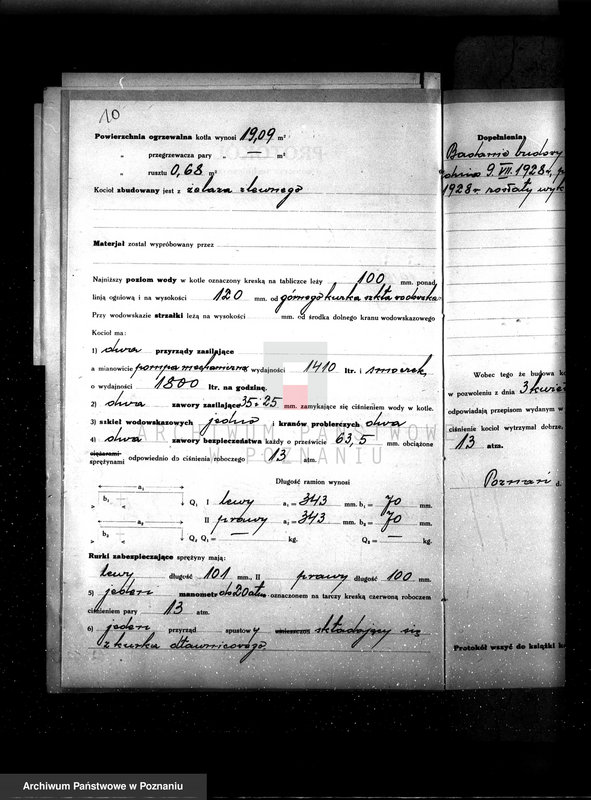 10
Powierzchnia ogrzewalna kotła wynosi 19,09 m²
„ przegrzewacza pary „ — m²
„ rusztu 0,68 m²
Kocioł zbudowany jest z żelaza zlewnego
Materjał został wypróbowany przez
Najniższy poziom wody w kotle oznaczony kreską na tabliczce leży 100 mm. ponad
linją ogniową i na wysokości 120 mm. od górnego kurka szkła wodowska
Przy wodowskazie strzałki leżą na wysokości mm. od środka dolnego kranu wodowskazowego
Kocioł ma:
1) dwa przyrządy zasilające
a mianowicie pompa mechaniczna wydajności 1410 ltr. i smoczek
o wydajności 1800 ltr. na godzinę.
2) dwa zawory zasilające 35 i 25 mm. zamykające się ciśnieniem wody w kotle.
3) szkieł wodowskazowych jedno i kranów probierczych dwa
4) dwa zawory bezpieczeństwa każdy o prześwicie 63,5 mm. obciążone
ciężarami
sprężynami odpowiednio do ciśnienia roboczego 13 atm.
Długość ramion wynosi
a₁
b₁
Q₁ I lewy a₁ = 343 mm. b₁ = 70 mm.
a₂
b₂
II prawy a₂ = 343 mm. b₂ = 70 mm.
Q₂ Q₁ = — kg. Q₂ = — kg.
Rurki zabezpieczające sprężyny mają:
lewy długość 101 mm., II prawy długość 100 mm.
5) jeden manometr do 20 atm. oznaczonem na tarczy kreską czerwoną roboczem
ciśnieniem pary 13 atm.
6) jeden przyrząd spustowy składający się
z kurka dławnicowego.
Dopełnienia
Badanie budowy
dnia 9. VII. 1928 r.
1928 r. zostały wyk
Wobec tego że budowa ko
w pozwoleniu z dnia 3 kwie
odpowiadają przepisom wydanym w
ciśnienie kocioł wytrzymał dobrze,
13 atm.
Poznań d.
Protokół wszyć do książki k
ARCHIWUM PAŃSTWOWE
W POZNANIU
Archiwum Państwowe w Poznaniu